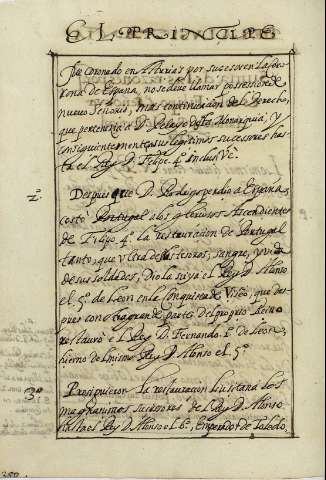 EL PRINCIPE
fue coronado en Asturias por sucesor en la Co-
rona de España, no se deve llamar possession de
nuevo Señorio, mas continuacion de el Derecho,
que pertenecia a D. Pelayo de la Monarquia, y
consiguientemente a sus legitimos sucesores has-
ta el Rey D. Felipe 4º inclusive.
2º
Despues que D. Rodrigo perdio a España,
costo Portugal a los gloriosos Ascendientes
de Filipo 4º la restauracion de Portugal
tanto, que ultra de los tesoros, sangre, y vida
de sus soldados, Dio la suya el Rey D. Alonso
el 5º de Leon en la Conquista de Viseo, que des-
pues con otra gran parte del proprio Reino
restauró el Rey D. Fernando 1º de Leon,
hierno del mismo Rey D. Alonso el 5º
3º
Prosiguieron la restauracion Lusitana los
magnanimos sucesores de el Rey D. Alonso
hasta el Rey D. Alonso el 6º, Emperador de Toledo,